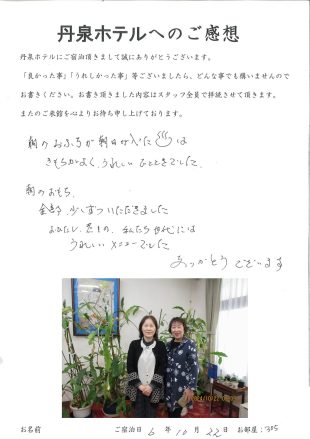 丹泉ホテルへのご感想
丹泉ホテルにご宿泊頂きまして誠にありがとうございます。
「良かった事」「うれしかった事」等ございましたら、どんな事でも構いませんので
お書きください。お書き頂きました内容はスタッフ全員で拝読させて頂きます。
またのご来館を心よりお待ち申し上げております。
朝のおふろが朝日が入った♨は
きもちがよく、うれしいひとときでした。
朝の
少しずついただきました
おひたし、煮もの、私たち世代には
うれしいメニューでした
ありがとうございます
お名前 ご宿泊日 6 年 10 月 22 日 お部屋：305